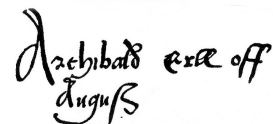 Archibald Erll off
Anguß